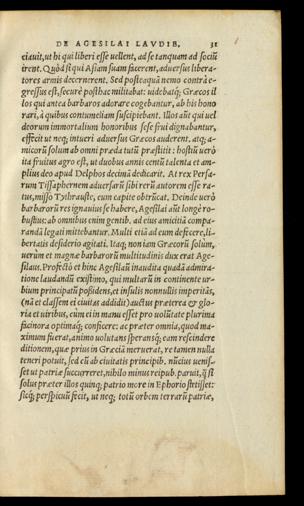 DE AGESILAI LAVDIB. 31
ciauit, ut hi qui liberi esse uellent, ad se tanquam ad sociū
irent. Quòd si qui Asiam suam facerent, aduersus libera-
tores armis decernerent. Sed posteaquā nemo contrà e-
gressus est, securè posthac militabat: uidebatq; Græcos il
los qui antea barbaros adorare cogebantur, ab his hono
rari, à quibus contumeliam suscipiebant. Illos aūt qui uel
deorum immortalium honoribus sese frui dignabantur,
effecit ut neq; intueri aduersus Græcos auderent. atq; a-
micorū solum ab omni præda tutū præstitit: hostiū uerò
ita fruitus agro est, ut duobus annis centū talenta et am-
plius deo apud Delphos decimā dedicarit. At rex Persa-
rum Tissaphernem aduersarū sibi rerū autorem esse ra-
tus, misso Tythrauste, eum capite obtrūcat. Deinde uerò
barbarorū res ignauius se habere, Agesilai aūt longè ro-
bustius: ab omnibus enim gentib. ad eius amicitiā compa-
randā legati mittebantur. Multi etiā ad eum defecere, li-
bertatis desiderio agitati. Itaq; non iam Græcorū solùm,
uerùm et magnæ barbarorū multitudinis dux erat Age-
silaus. Profectò et hinc Agesilaū inaudita quadā admira-
tione laudandū existimo, qui multarū in continente ur-
bium principatū possidens, et insulis nonnullis imperitās,
(nā et classem ei ciuitas addidit) auctus præterea et glo-
ria et uiribus, cùm ei in manu esset pro uolūtate plurima
facinora optimaq; conficere: ac præter omnia, quod ma-
ximum fuerat, animo uolutans speransq; eam rescindere
ditionem, quæ prius in Græciā meruerat, re tamen nulla
teneri potuit, sed cū ab ciuitatis principib. nūcius uenis-
set ut patriæ succurreret, nihilo minus reipub. paruit, q̄ si
solus præter illos quinq; patrio more in Ephorio stetisset:
sicq; perspicuū fecit, ut neq; totū orbem terrarū patriæ,